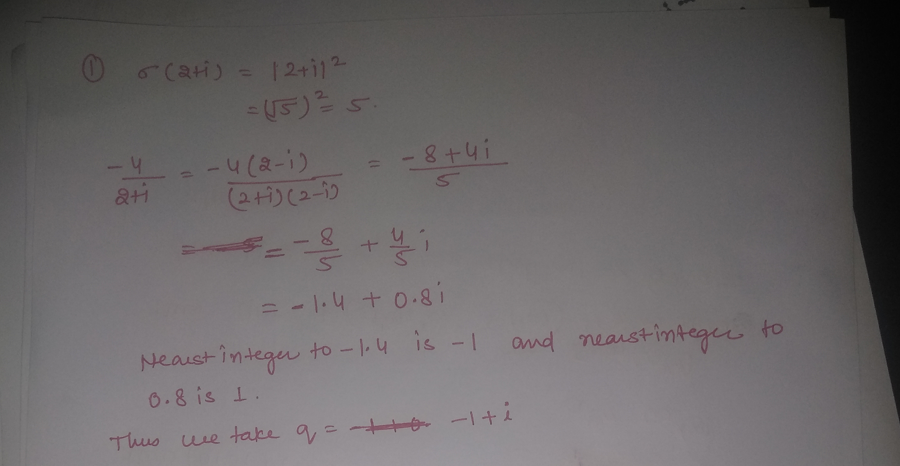 ① σ(2+i) = |2+i|²
= (√5)² = 5.
-4/(2+i) = -4(2-i)/((2+i)(2-i)) = (-8+4i)/5
= -8/5 + 4/5 i
= -1.4 + 0.8i
Nearst integer to -1.4 is -1 and nearst integer to
0.8 is 1.
Thus we take q = -1+i